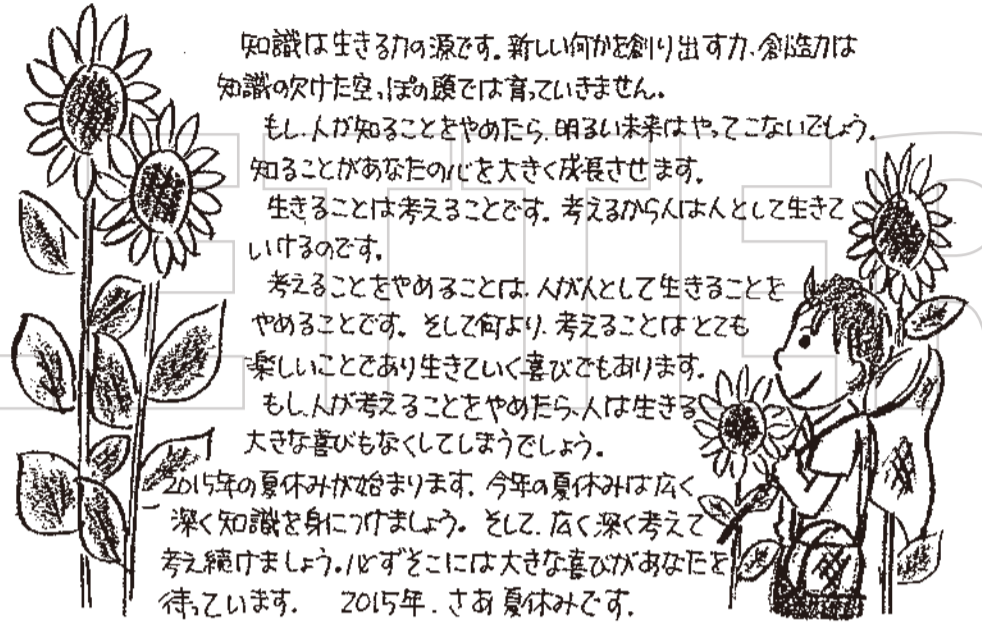 知識は生きる力の源です。新しい何かを創り出す力、創造力は
知識の欠けた空っぽの頭では育っていきません。
もし、人が知ることをやめたら、明るい未来はやってこないでしょう。
知ることがあなたの心を大きく成長させます。
生きることは考えることです。考えるから人は人として生きて
いけるのです。
考えることをやめることは、人が人として生きることを
やめることです。そして何より、考えることはとても
楽しいことであり生きていく喜びでもあります。
もし、人が考えることをやめたら、人は生きる
大きな喜びもなくしてしまうでしょう。
2015年の夏休みが始まります。今年の夏休みは広く
深く知識を身につけましょう。そして、広く深く考えて
考え続けましょう。必ずそこには大きな喜びがあなたを
待っています。 2015年、さあ夏休みです。
LETTER